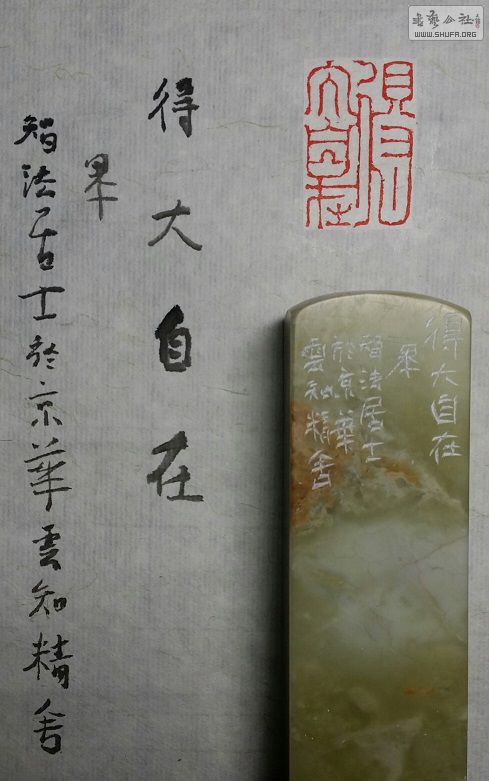 得大自在
果
智法居士於京華雲知精舍
得大自在
得大自在
果
智法居士
於京華
雲知精舍
書藝公社
WWW.SHUFA.ORG